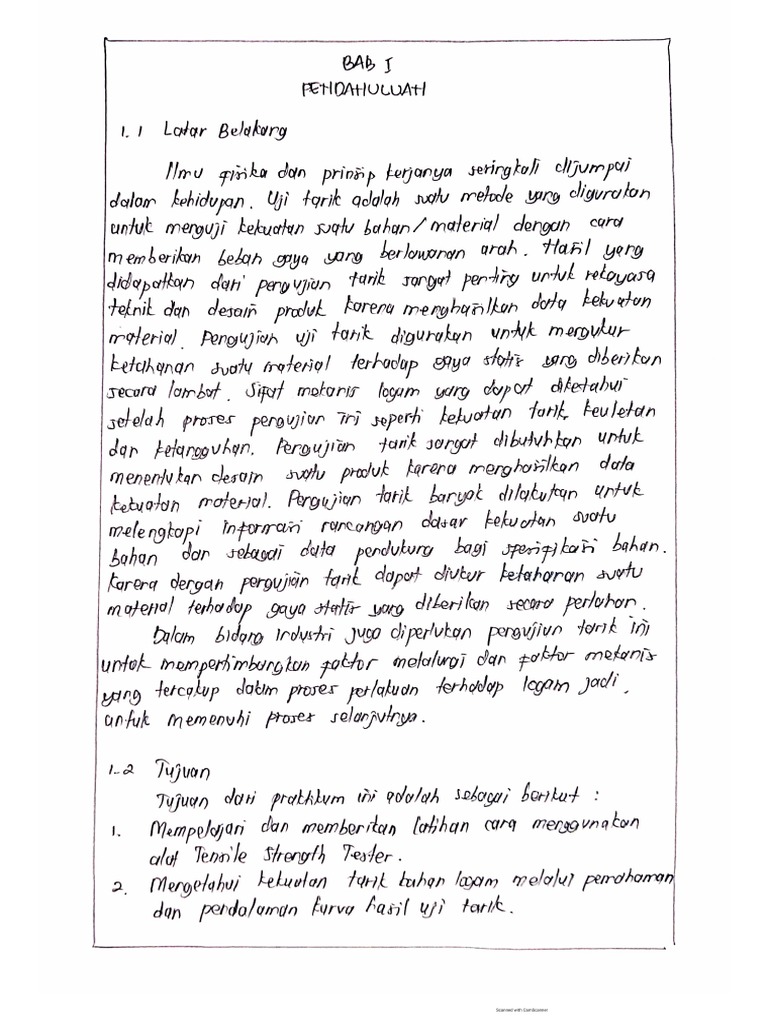 BAB I
PENDAHULUAN
1.1 Latar Belakang
Ilmu fisika dan prinsip kerjanya seringkali dijumpai
dalam kehidupan. Uji tarik adalah suatu metode yang digunakan
untuk menguji kekuatan suatu bahan/material dengan cara
memberikan beban gaya yang berlawanan arah. Hasil yang
didapatkan dari pengujian tarik sangat penting untuk rekayasa
teknik dan desain produk karena menghasilkan data kekuatan
material. Pengujian uji tarik digunakan untuk mengukur
ketahanan suatu material terhadap gaya statis yang diberikan
secara lambat. Sifat mekanis logam yang dapat diketahui
setelah proses pengujian ini seperti kekuatan tarik, keuletan
dan ketangguhan. Pengujian tarik sangat dibutuhkan untuk
menentukan desain suatu produk karena menghasilkan data
kekuatan material. Pengujian tarik banyak dilakukan untuk
melengkapi informasi rancangan dasar kekuatan suatu
bahan dan sebagai data pendukung bagi spesifikasi bahan.
Karena dengan pengujian tarik dapat diukur ketahanan suatu
material terhadap gaya statis yang diberikan secara perlahan.
Dalam bidang industri juga diperlukan pengujian tarik ini
untuk mempertimbangkan faktor metalurgi dan faktor mekanis
yang tercakup dalam proses perlakuan terhadap logam jadi,
untuk memenuhi proses selanjutnya.
1.2 Tujuan
Tujuan dari praktikum ini adalah sebagai berikut :
1. Mempelajari dan memberikan latihan cara menggunakan
alat Tensile Strength Tester.
2. Mengetahui kekuatan tarik bahan logam melalui pemahaman
dan pendalaman kurva hasil uji tarik.
Scanned with CamScanner